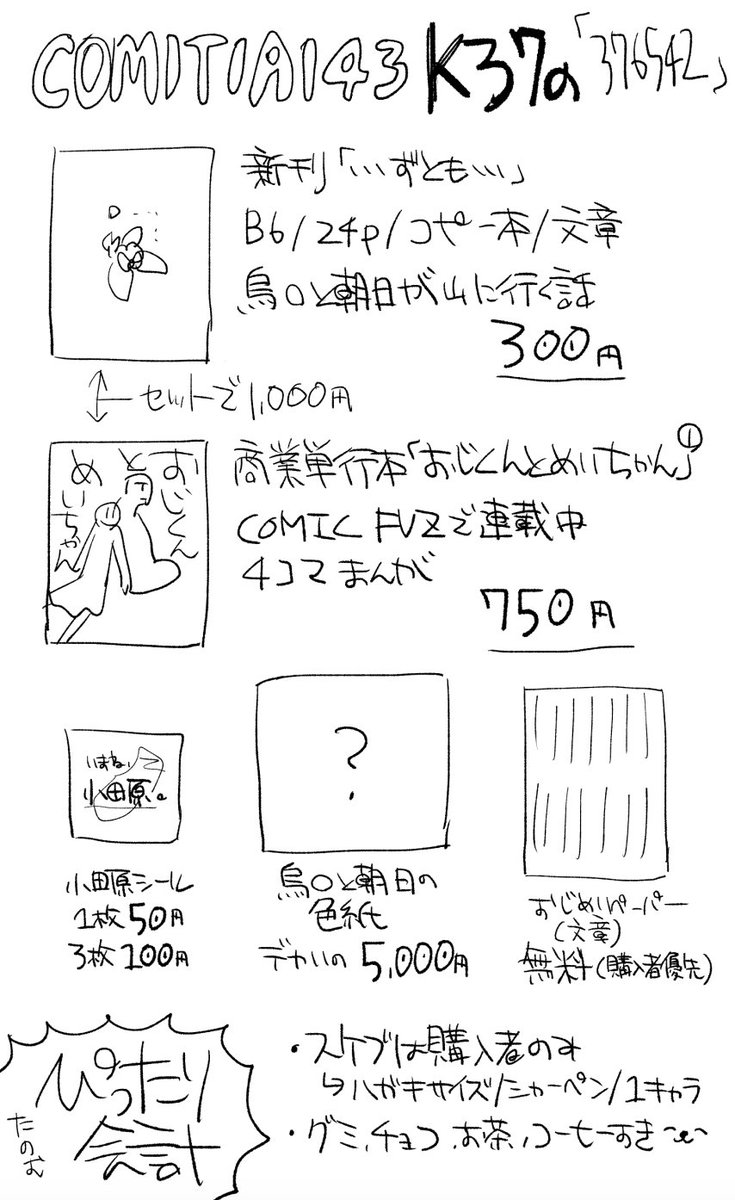 COMITIA143 K37の「376542」
新刊「…ずとも…」
B6/24p/コピー本/文章
鳥〇と朝日が山に行く話
300円
セットで1,000円
おじくん
と
めいちゃん
商業単行本「おじくんとめいちゃん」①
COMIC FUZで連載中
4コマまんが
750円
小田原。
?
小田原シール
1枚50円
3枚100円
鳥〇と朝日の
色紙
デカいの 5,000円
おじめいペーパー
(文章)
無料(購入者優先)
ぴったり
会計
たのむ
・スケブは購入者のみ
↳ハガキサイズ/シャーペン/1キャラ
・グミ、チョコ、お茶、コーヒーすき